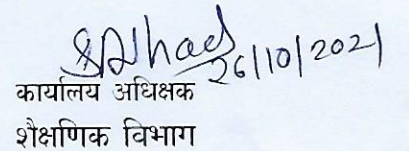 26/10/2021
कार्यालय अधिक्षक
शैक्षणिक विभाग